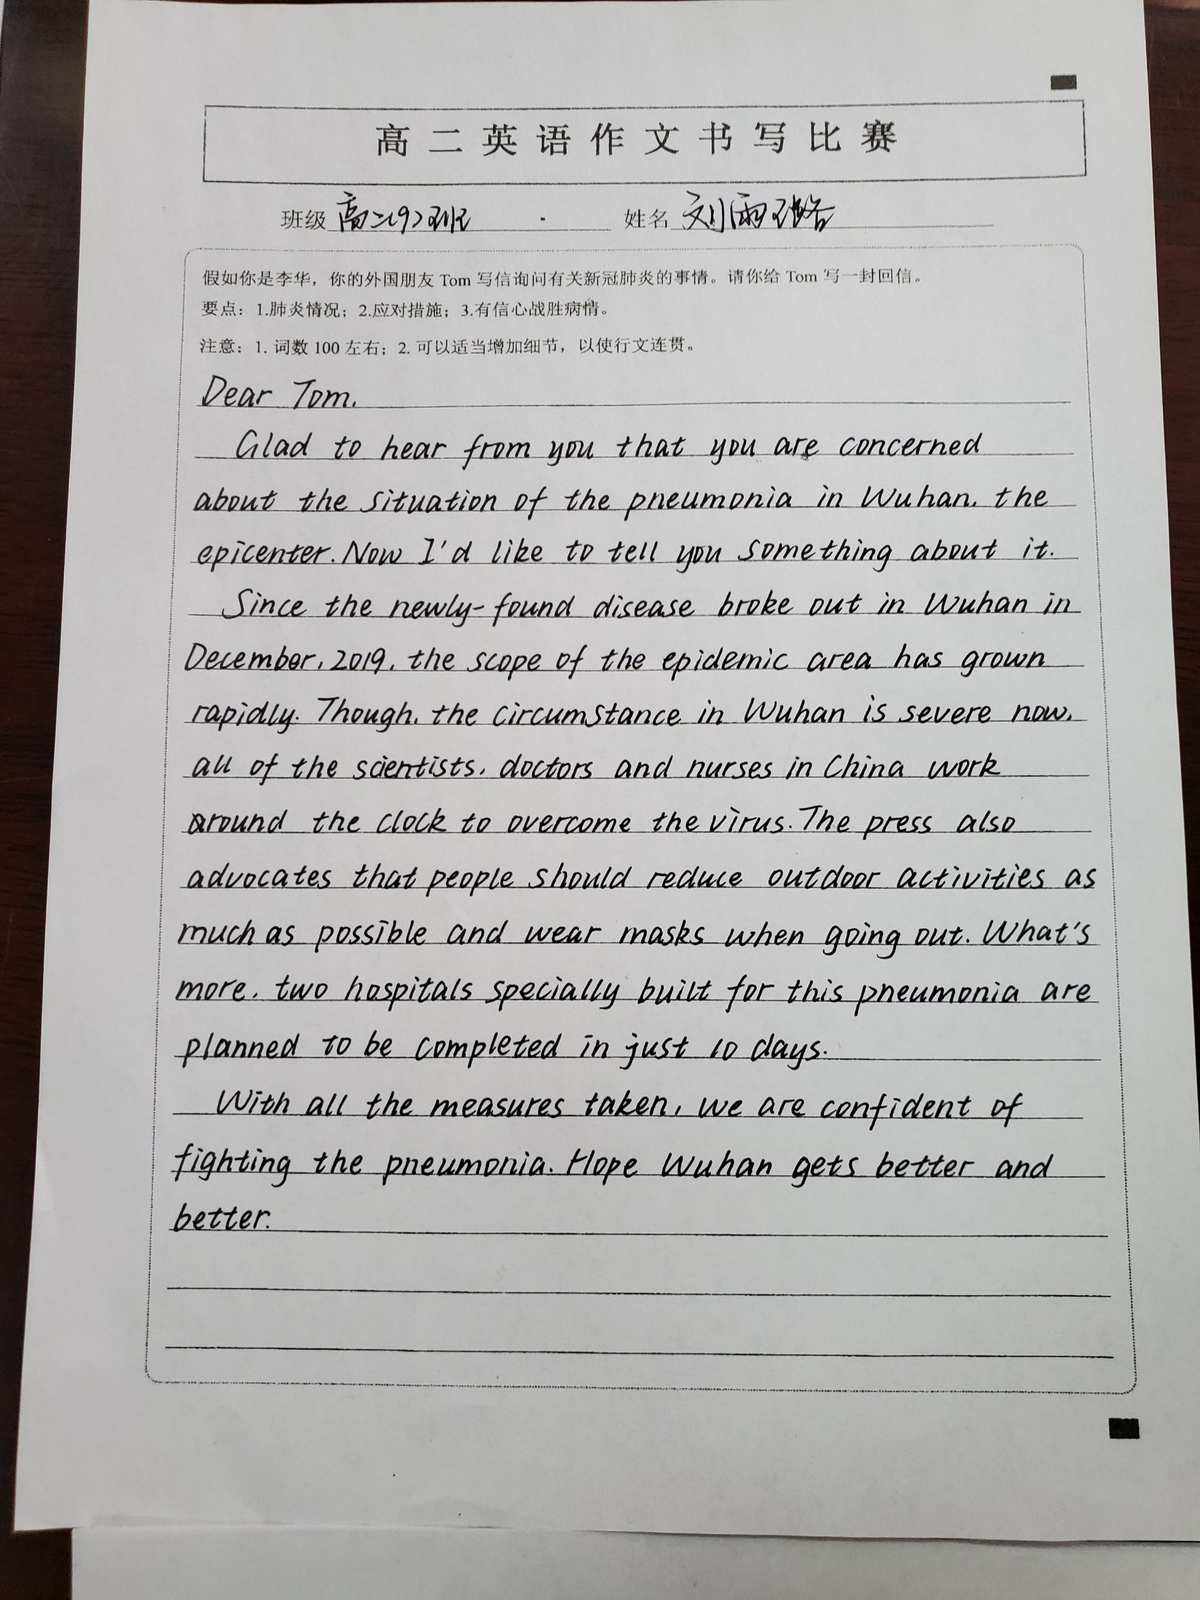 高二英语作文书写比赛
班级 高二(9)班 姓名 刘雨璐
假如你是李华，你的外国朋友 Tom 写信询问有关新冠肺炎的事情。请你给 Tom 写一封回信。
要点：1.肺炎情况；2.应对措施；3.有信心战胜病情。
注意：1. 词数 100 左右；2. 可以适当增加细节，以使行文连贯。
Dear Tom,
Glad to hear from you that you are concerned
about the situation of the pneumonia in Wuhan, the
epicenter. Now I'd like to tell you something about it.
Since the newly-found disease broke out in Wuhan in
December, 2019, the scope of the epidemic area has grown
rapidly. Though, the circumstance in Wuhan is severe now,
all of the scientists, doctors and nurses in China work
around the clock to overcome the virus. The press also
advocates that people should reduce outdoor activities as
much as possible and wear masks when going out. What's
more, two hospitals specially built for this pneumonia are
planned to be completed in just 10 days.
With all the measures taken, we are confident of
fighting the pneumonia. Hope Wuhan gets better and
better.